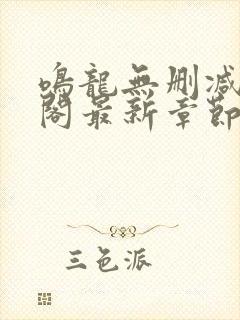 鳴龍無刪減
閣最新章節
三色派